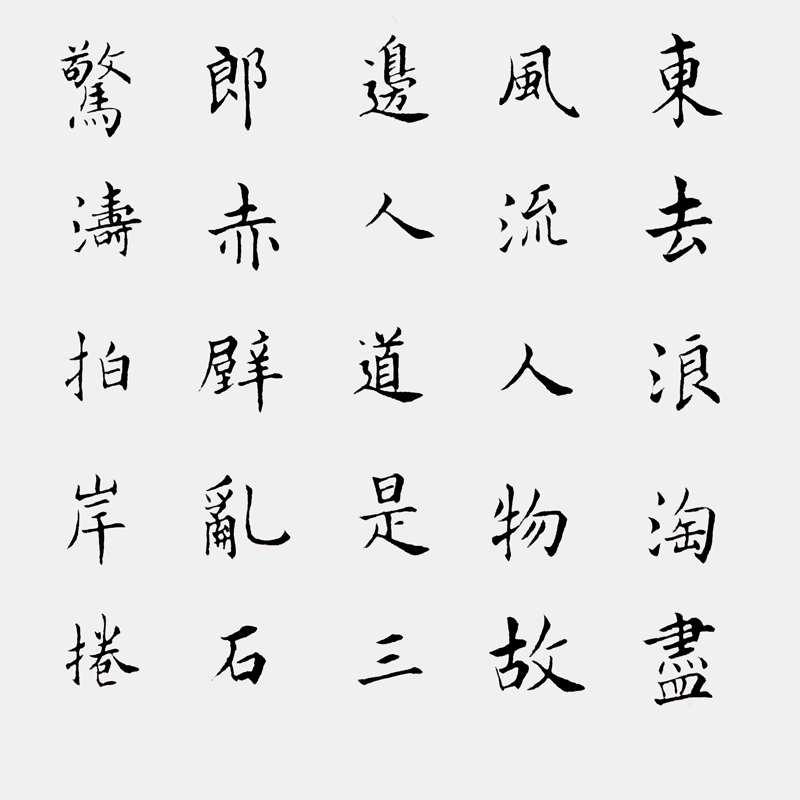 東去浪淘盡
風流人物故
邊人道是三
郎赤壁亂石
驚濤拍岸捲